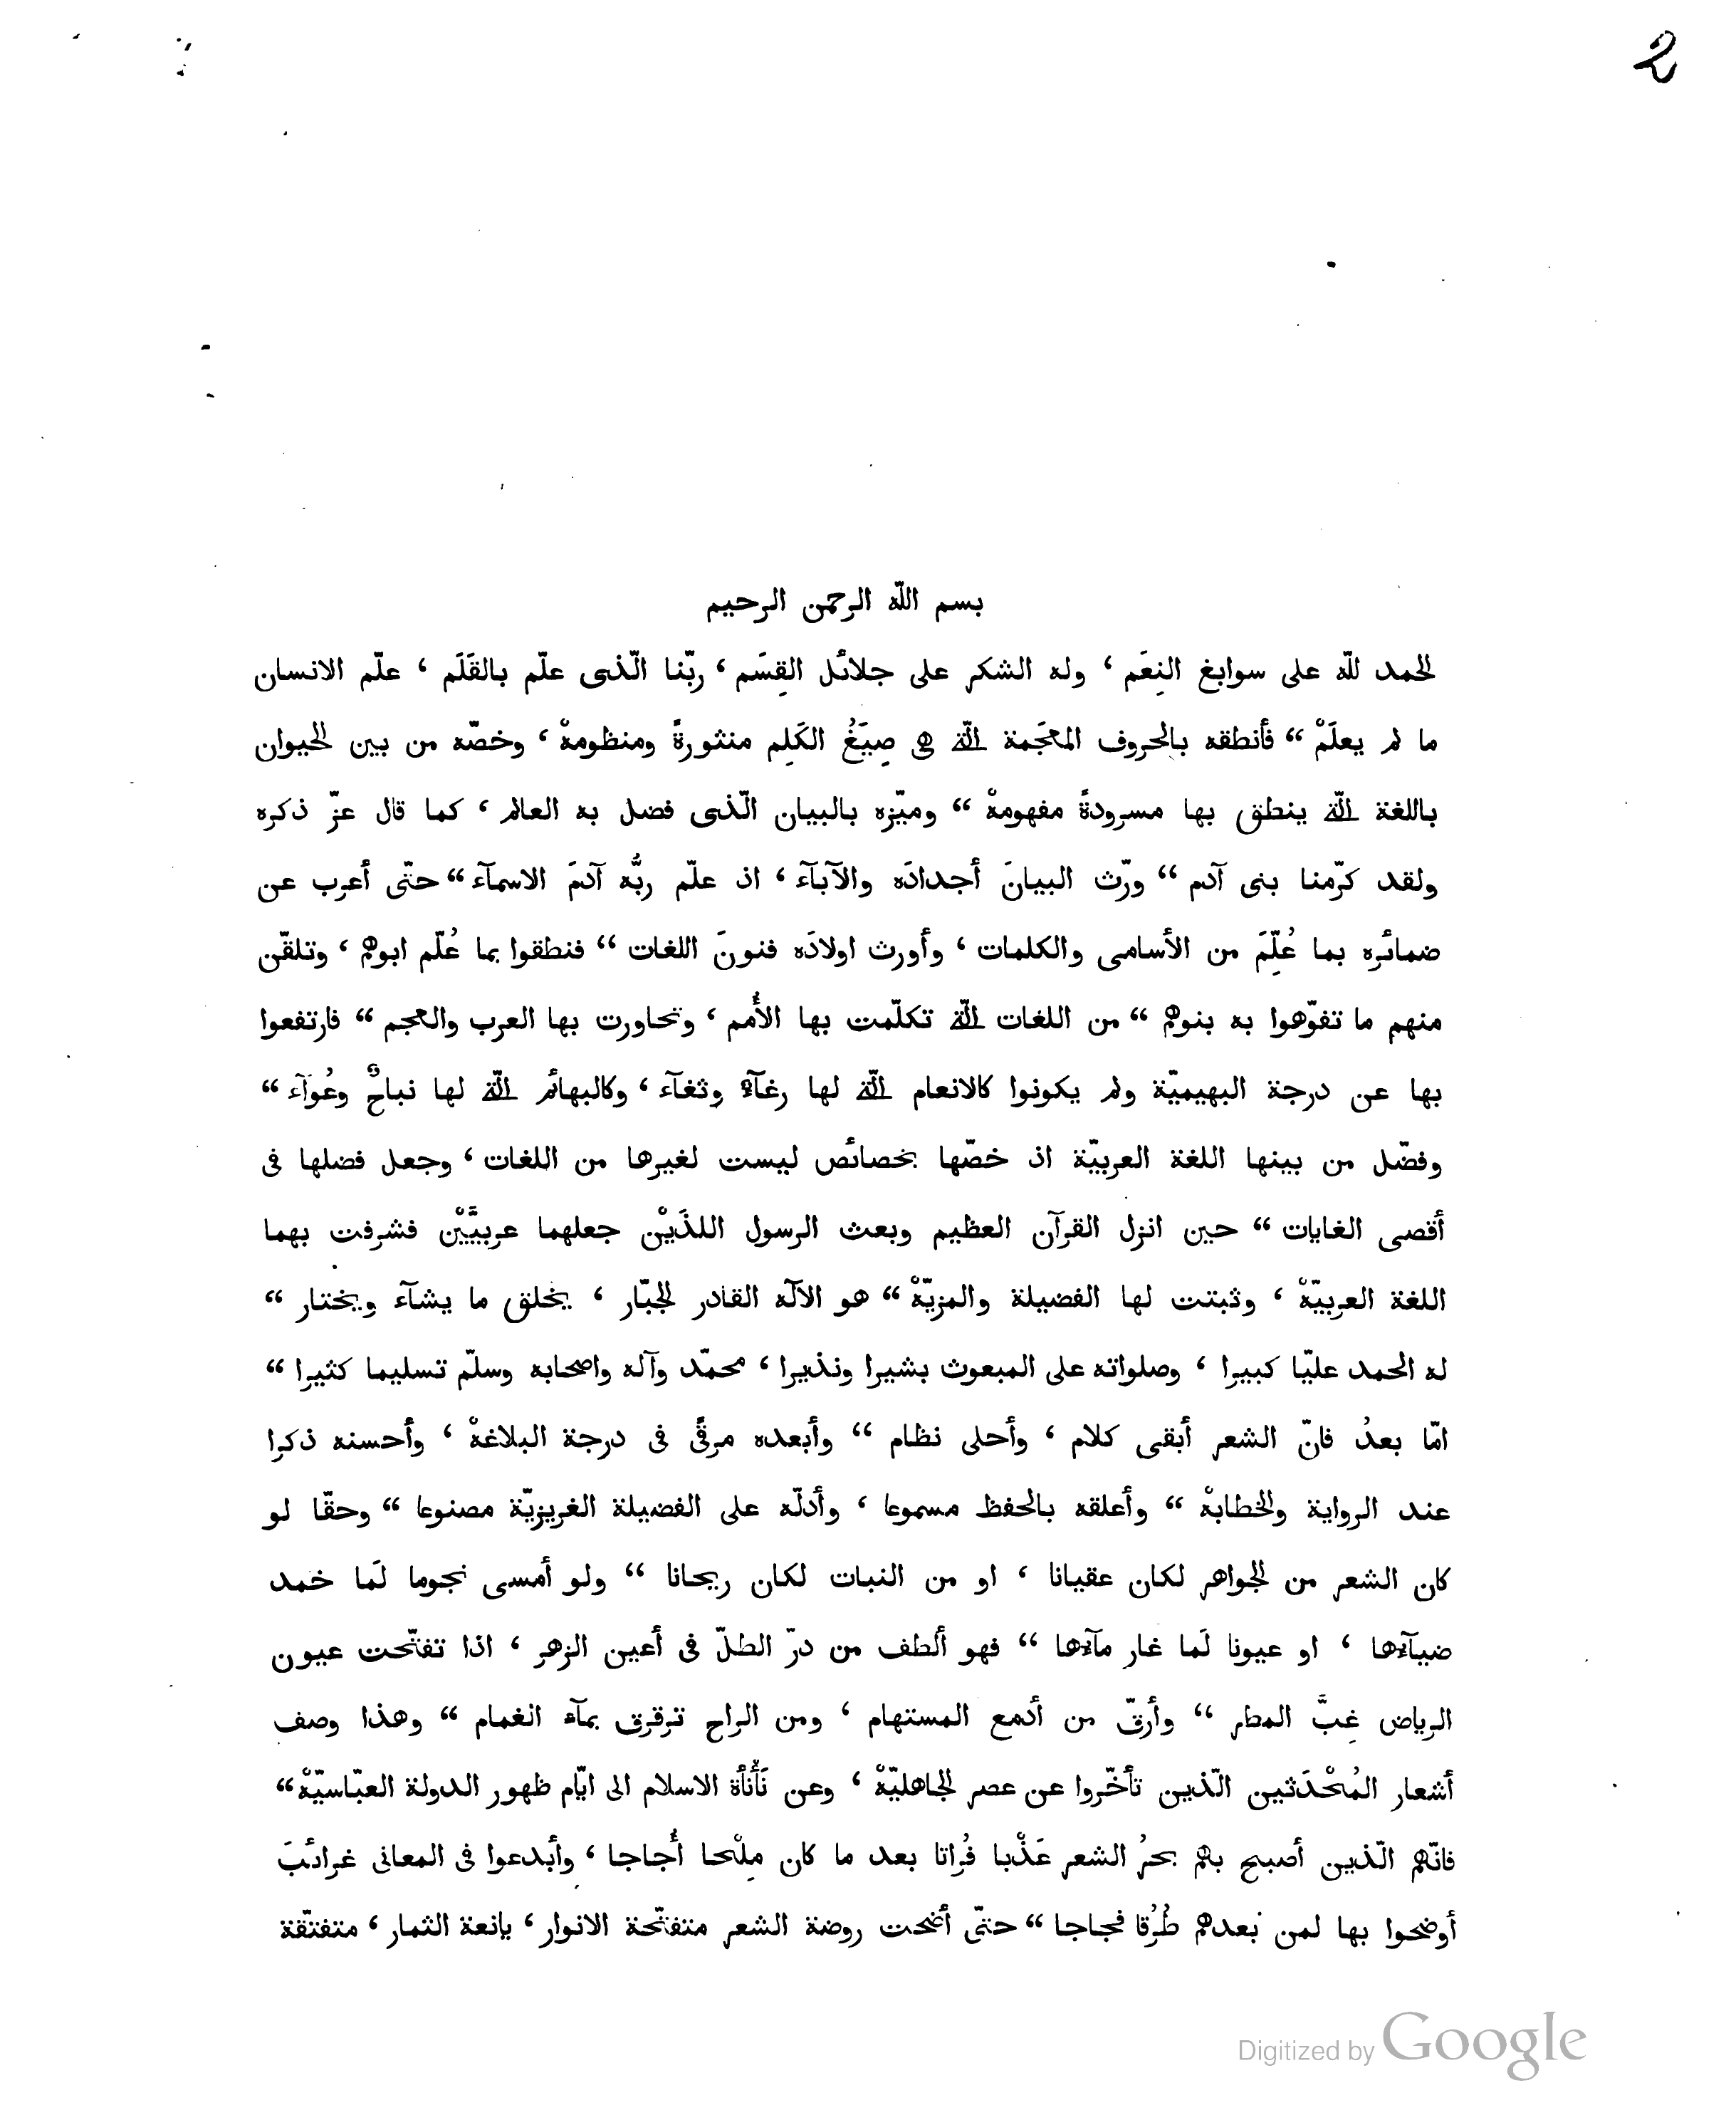 2
بسم اللّه الرحمن الرحيم
الحمد للّه على سوابغ النِعَم ، وله الشكر على جلائل القِسَم ، ربّنا الّذى علّم بالقَلَم ، علّم الانسان
ما لم يعلَمْ “ فأنطقه بالحروف المعجَمة الّتى هى صِيَغُ الكَلِم منثورةً ومنظومهْ ، وخصّه من بين الحيوان
باللغة الّتى ينطق بها مسرودةً مفهومهْ “ وميّزه بالبيان الّذى فضل به العالم ، كما قال عزّ ذكره
ولقد كرّمنا بنى آدم “ ورّث البيانَ أجدادَه والآبآء ، اذ علّم ربُّه آدمَ الاسمآء “ حتّى أعرب عن
ضمائره بما عُلِّمَ من الأسامى والكلمات ، وأورث اولادَه فنونَ اللغات “ فنطقوا بما عُلّم ابوهم ، وتلقّن
منهم ما تفوّهوا به بنوهم “ من اللغات الّتى تكلّمت بها الأُمم ، وتحاورت بها العرب والعجم “ فارتفعوا
بها عن درجة البهيميّة ولم يكونوا كالانعام الّتى لها رغآءٌ وثغآء ، وكالبهائم الّتى لها نباحٌ وعُوآء “
وفضّل من بينها اللغة العربيّة اذ خصّها بخصائص ليست لغيرها من اللغات ، وجعل فضلها فى
أقصى الغايات “ حين انزل القرآن العظيم وبعث الرسول اللذَيْن جعلهما عربيَّيْن فشرفت بهما
اللغة العربيّهْ ، وثبتت لها الفضيلة والمزيّهْ “ هو الآله القادر الجبّار ، يخلق ما يشآء ويختار “
له الحمد عليّا كبيرا ، وصلواته على المبعوث بشيرا ونذيرا ، محمّد وآله واصحابه وسلّم تسليما كثيرا “
امّا بعدُ فانّ الشعر أبقى كلام ، وأحلى نظام “ وأبعده مرقًى فى درجة البلاغهْ ، وأحسنه ذكرا
عند الرواية والخطابهْ “ وأعلقه بالحفظ مسموعا ، وأدلّه على الفضيلة الغريزيّة مصنوعا “ وحقّا لو
كان الشعر من الجواهر لكان عقيانا ، او من النبات لكان ريحانا “ ولو أمسى نجوما لَما خمد
ضيآءها ، او عيونا لَما غار مآءها “ فهو ألطف من درّ الطلّ فى أعين الزهر ، اذا تفتّحت عيون
الرياض غِبَّ المطر “ وأرقّ من أدمع المستهام ، ومن الراح ترقرق بمآء الغمام “ وهذا وصف
أشعار المُحْدَثين الّذين تأخّروا عن عصر الجاهليّهْ ، وعن نَأْنأة الاسلام الى ايّام ظهور الدولة العبّاسيّهْ “
فانّهم الّذين أصبح بهم بحرُ الشعر عَذْبا فُراتا بعد ما كان مِلْحا أُجاجا ، وأبدعوا فى المعانى غرائبَ
أوضحوا بها لمن بعدهم طُرُقا فجاجا “ حتّى أضحت روضة الشعر متفتّحة الانوار ، يانعة الثمار ، متفتّقة
Digitized by Google